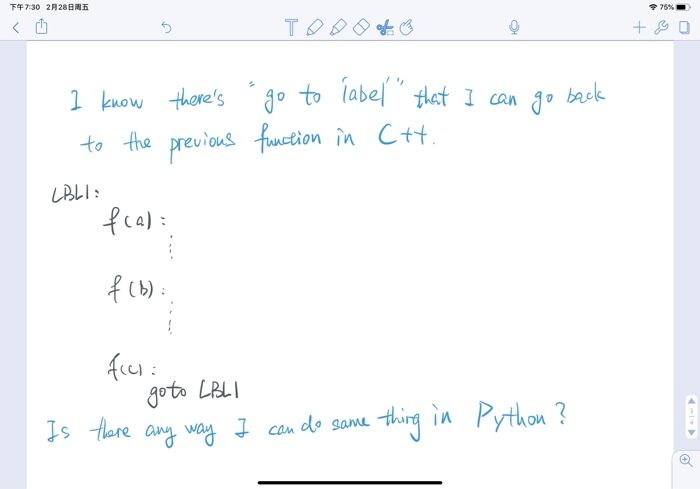 下午7:30 2月28日周五
75%
T
I know there's "go to label" that I can go back
to the previous function in C++.
LBL1:
f(a):
f(b):
f(c):
goto LBL1
Is there any way I can do same thing in Python?